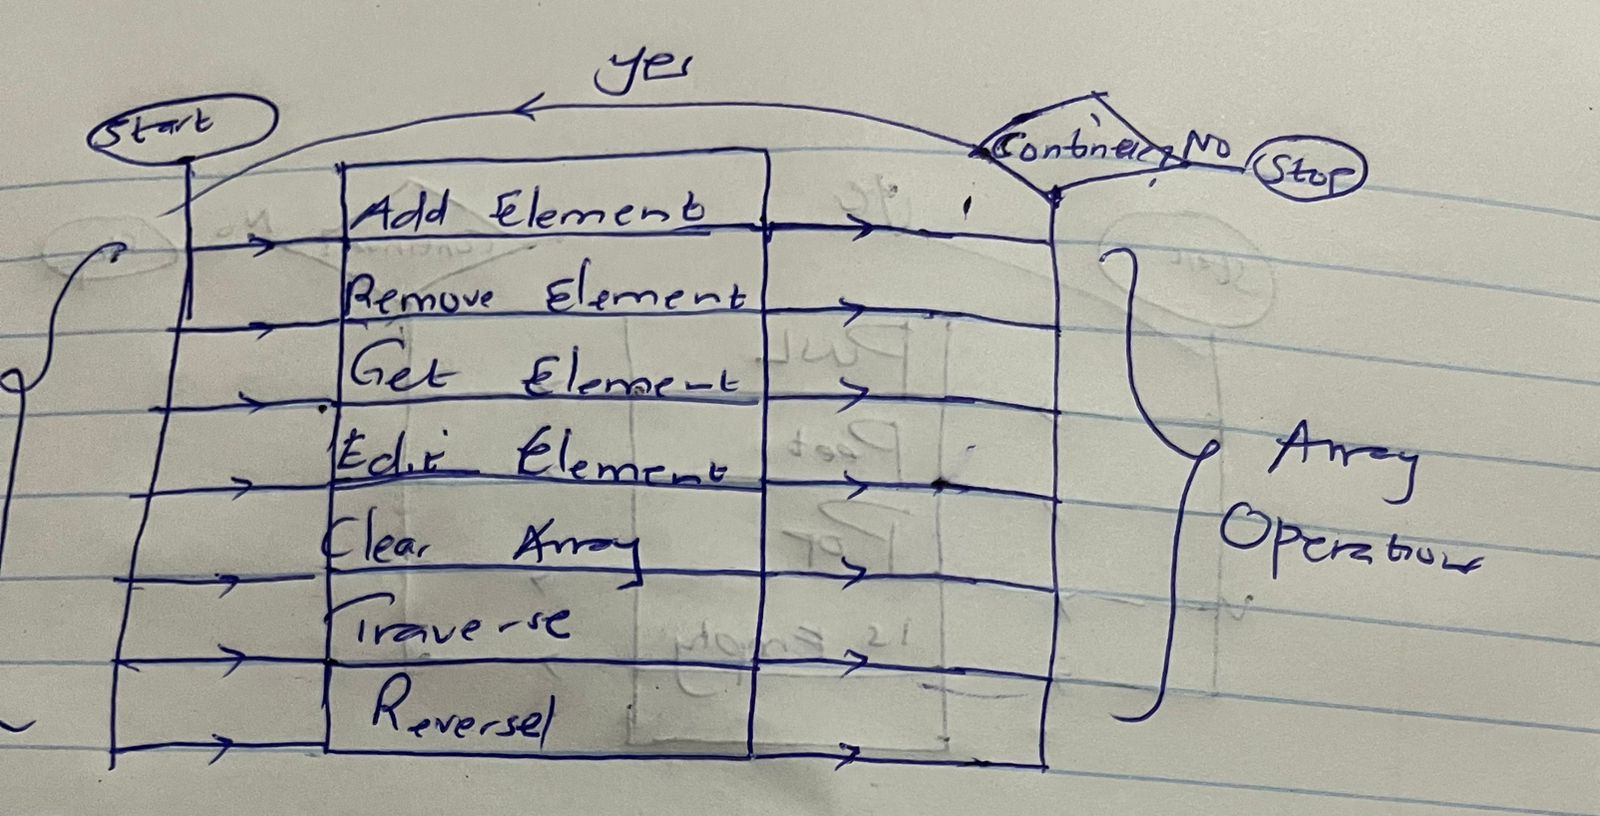 yes
Start
Continue
No
Stop
Add Element
Remove Element
Get Element
Edit Element
Clear Array
Traverse
Reversel
Array
Operation